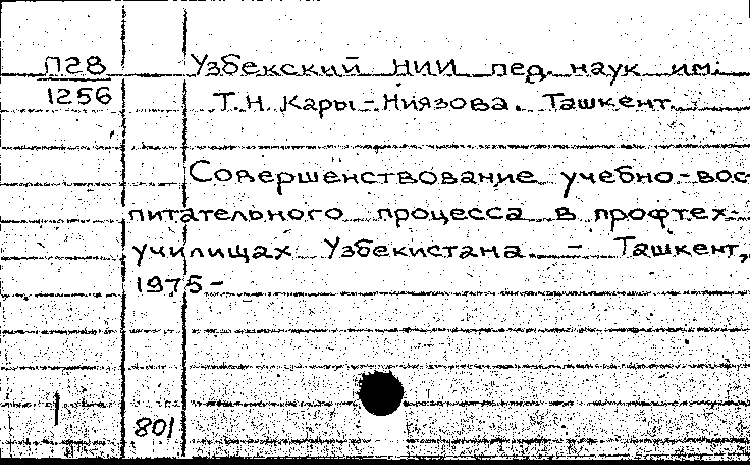 П28 Узбекский НИИ пед. наук им.
1256 Т.Н. Кары-Ниязова. Ташкент.
Совершенствование учебно-вос-
питательного процесса в профтех-
училищах Узбекистана. - Ташкент,
1975-
1
801